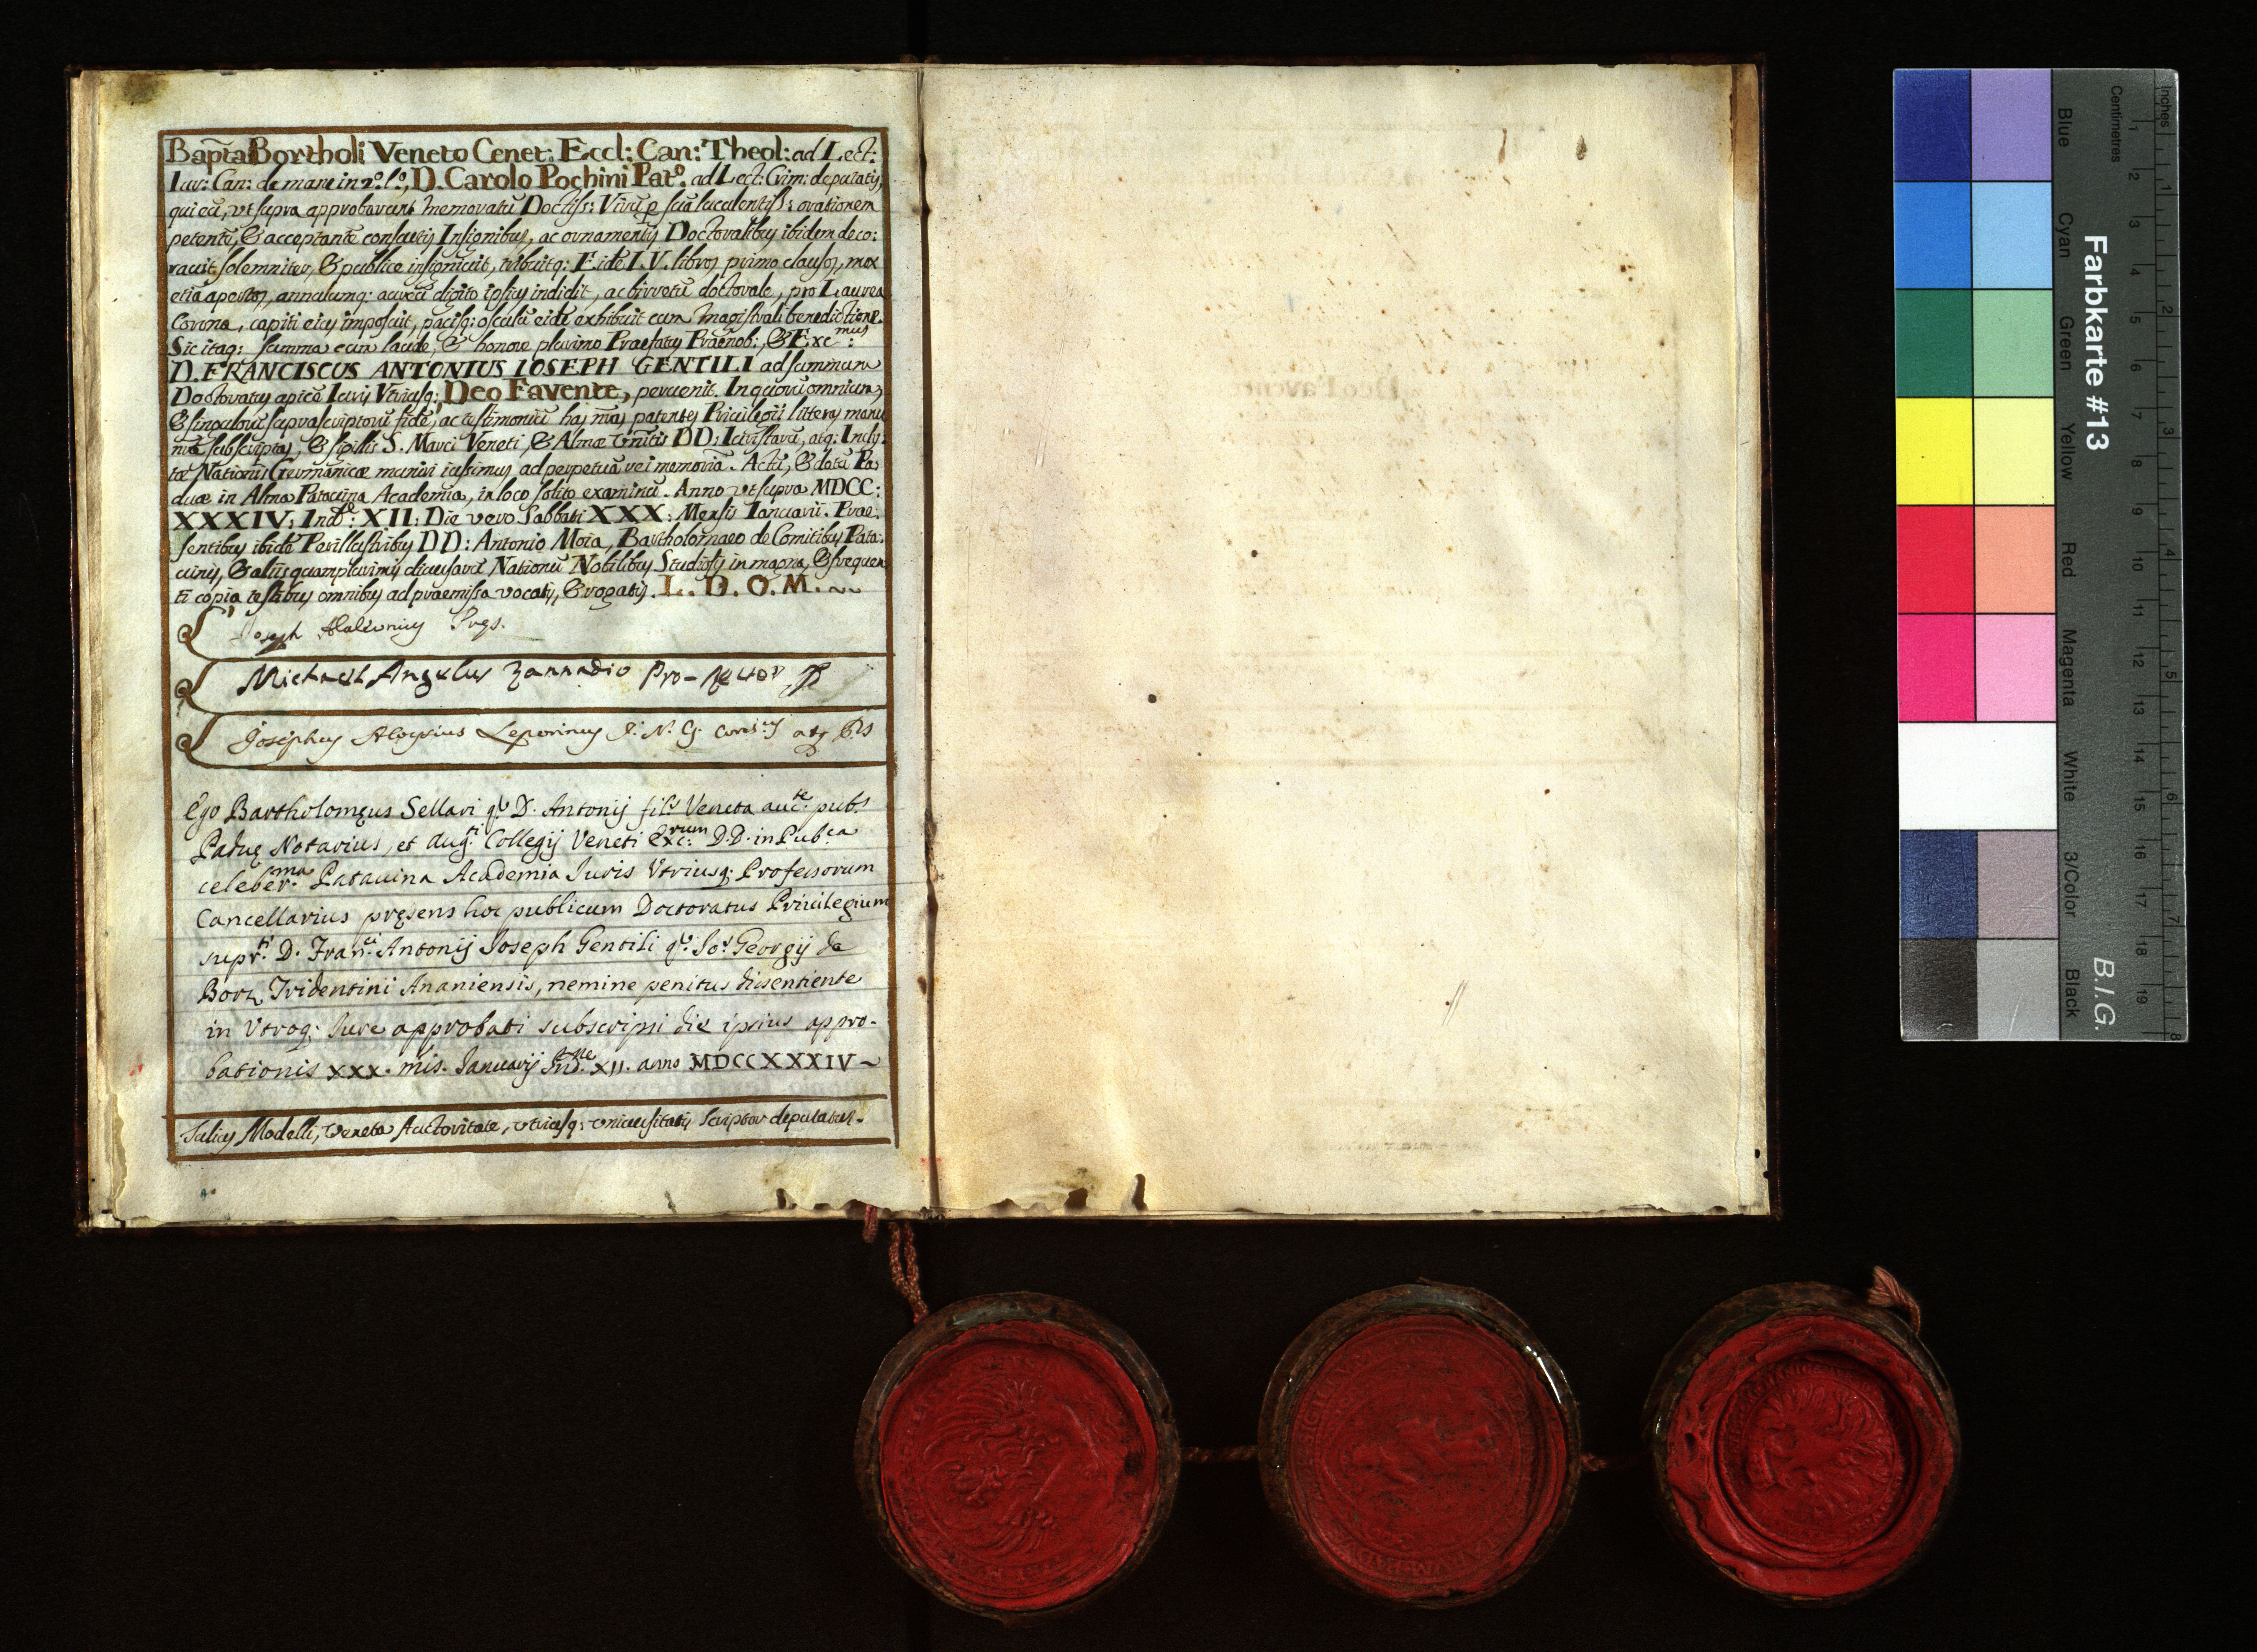 Bap̃ta Bortholi Veneto Cenet: Eccl: Can: Theol: ad Lect:
Iur: Can: de mane in 2.º l.º, D. Carolo Pochini Pat.º ad Lect: Crim: deputatis,
qui eũ, vt supra approbarunt memoratũ Doctiss: Virũ p suã luculentiss: orationem
petentẽ, & acceptantẽ consuetis Insignibus, ac ornamentis Doctoralibus ibidem deco:
rauit solemniter, & publice insigniuit, tribuitq: Eidẽ I. V. libros primo clausos, mox
etiã apertos, annulumq: aureũ digito ipsius indidit, ac birretũ doctorale, pro Laurea
Corona, capiti eius imposuit, pacisq: osculũ eidẽ exhibuit cum Magistrali benedictione.
Sic itaq: summa cum laude, & honore plurimo Praefatus Praenob: & Exc:mus
D. FRANCISCUS ANTONIUS IOSEPH GENTILI ad summum
Doctoratus apicẽ Iuris Vtriusq: Deo Favente, peruenit. In quorũ omnium,
& singulorũ suprascriptorũ fidẽ, ac testimoniũ has nr̃as patentes Priuilegii litteras manu
nr̃a subscriptas, & sigillis S. Marci Veneti, & Almæ Vnĩtis DD: Iuristarũ, atq: Incly:
tæ Nationis Germanicæ muniri iussimus ad perpetuã rei memoriã. Actũ, & datũ Pa:
duæ in Alma Patauina Academia, in loco solito examinũ. Anno vt supra MDCC:
XXXIV: Ind.e: XII: Die vero Sabbati XXX: Mensis Ianuarii. Prae:
sentibus ibidẽ Perillustribus DD: Antonio Moia, Bartholomaeo de Comitibus Pata:
uinis, & aliis quamplurimis diuersarũ Nationũ Nobilibus Studiosis in magna, & frequen
ti copia testibus omnibus ad praemissa vocatis, & rogatis. L. D. O. M. ~~
Joseph
Michael Angelus Zannadio Pro-
Josephus Aloysius Leporinus I. N. G.
Ego Bartholomęus Sellari q.m D. Antonij fil.s Veneta auc.te pub.s
Paduę Notarius, et Aug.ti Collegij Veneti Exc.rum D.D. in Pub.ca
celeber.ma Patauina Academia Iuris Vtriusq; Professorum
Cancellarius pręsens hoc publicum Doctoratus Priuilegium
supr.ti D. Fran.ci Antonij Joseph Gentili q.m Jo: Georgij de
Borz, Tridentini Ananiensis, nemine penitus dissentiente
in Vtroq; Iure approbati subscripsi die ipsius appro-
bationis XXX. mis. Januarij Ind.ne XII. anno MDCCXXXIV ~
Iulius Modelli, Veneta Auctoritate, vtriusq: vniuersitatis Scriptor deputatus.
Farbkarte #13
B.I.G.
Inches
Centimetres
1 2 3 4 5 6 7 8 9 10 11 12 13 14 15 16 17 18 19
1 2 3 4 5 6 7 8
Blue
Cyan
Green
Yellow
Red
Magenta
White
3/Color
Black